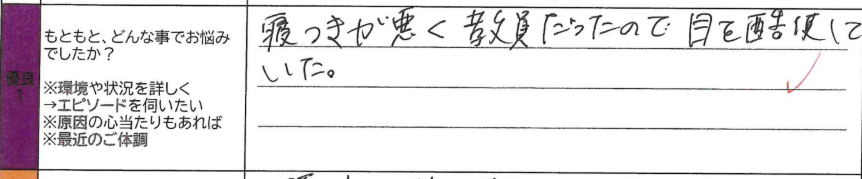 優良
1
もともと、どんな事でお悩み
でしたか？
※環境や状況を詳しく
→エピソードを伺いたい
※原因の心当たりもあれば
※最近のご体調
寝つきが悪く教員だったので目を酷使して
いた。